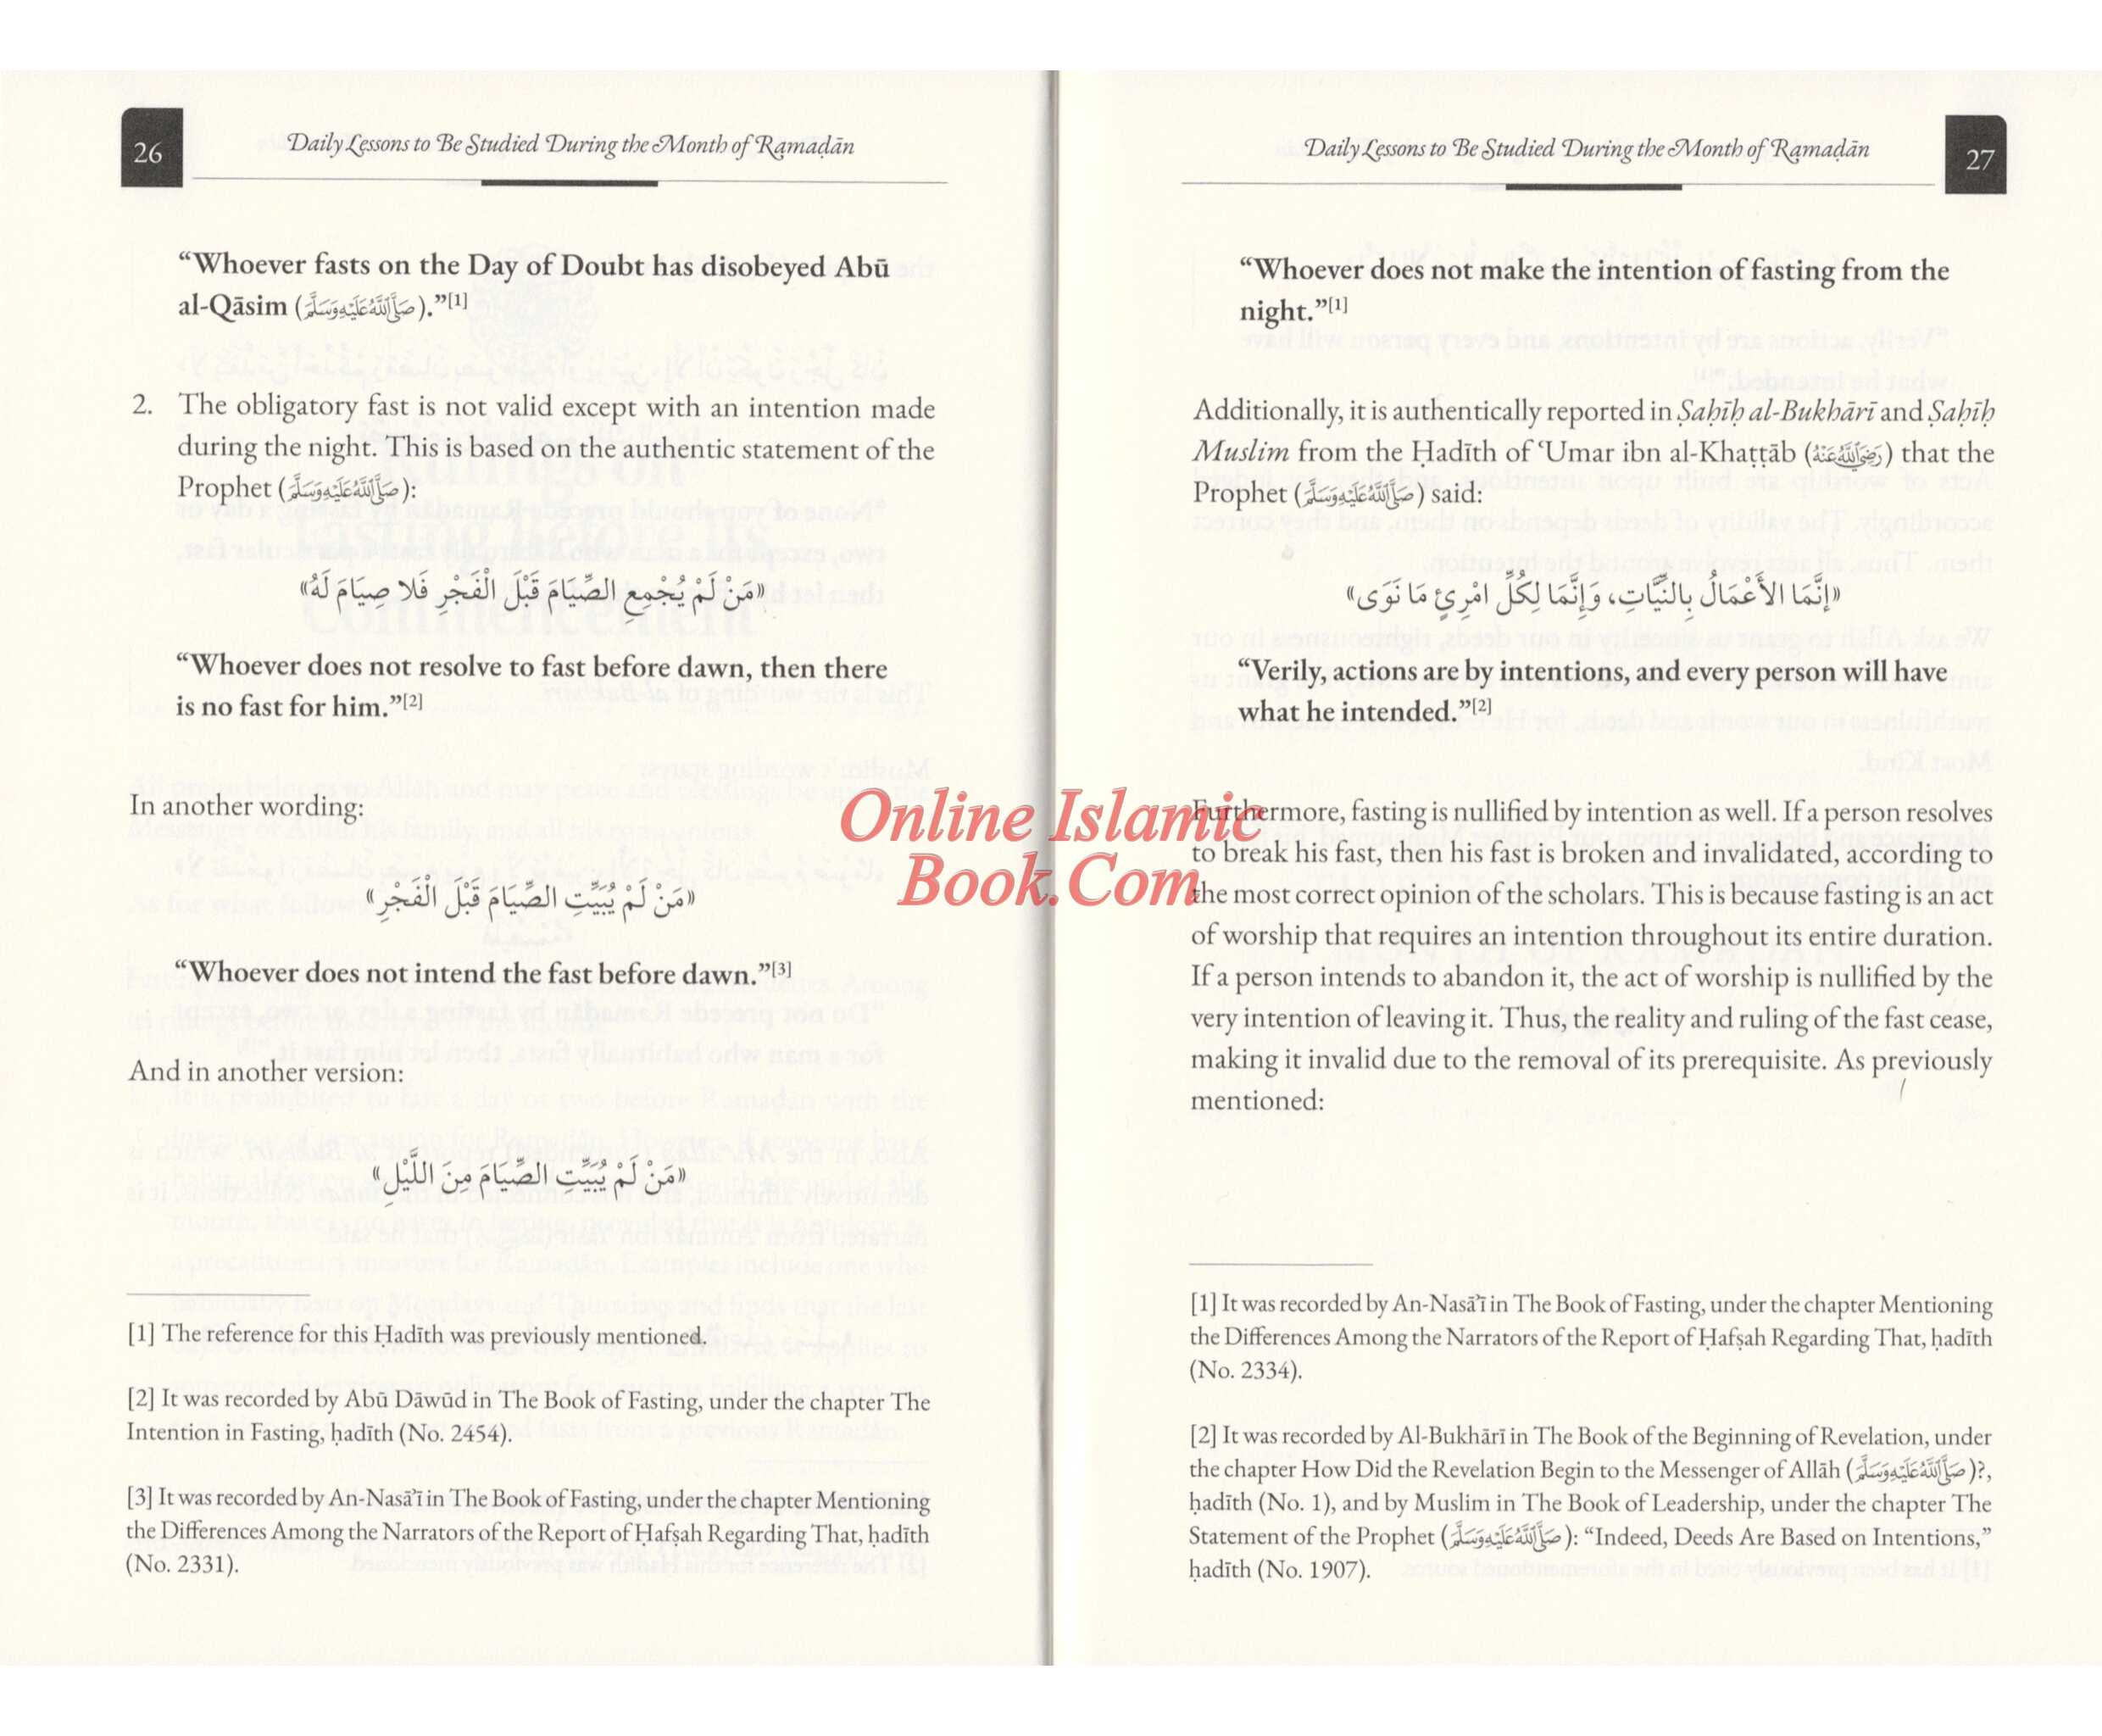 26
Daily Lessons to Be Studied During the Month of Ramaḍān
“Whoever fasts on the Day of Doubt has disobeyed Abū
al-Qāsim (صَلَّى اللَّهُ عَلَيْهِ وَسَلَّمَ).”[1]
2. The obligatory fast is not valid except with an intention made
during the night. This is based on the authentic statement of the
Prophet (صَلَّى اللَّهُ عَلَيْهِ وَسَلَّمَ):
«مَنْ لَمْ يُجْمِعِ الصِّيَامَ قَبْلَ الْفَجْرِ فَلا صِيَامَ لَهُ»
“Whoever does not resolve to fast before dawn, then there
is no fast for him.”[2]
In another wording:
«مَنْ لَمْ يُبَيِّتِ الصِّيَامَ قَبْلَ الْفَجْرِ»
“Whoever does not intend the fast before dawn.”[3]
And in another version:
«مَنْ لَمْ يُبَيِّتِ الصِّيَامَ مِنَ اللَّيْلِ»
[1] The reference for this Ḥadīth was previously mentioned.
[2] It was recorded by Abū Dāwūd in The Book of Fasting, under the chapter The
Intention in Fasting, ḥadīth (No. 2454).
[3] It was recorded by An-Nasā’ī in The Book of Fasting, under the chapter Mentioning
the Differences Among the Narrators of the Report of Ḥafṣah Regarding That, ḥadīth
(No. 2331).
Daily Lessons to Be Studied During the Month of Ramaḍān
27
“Whoever does not make the intention of fasting from the
night.”[1]
Additionally, it is authentically reported in Ṣaḥīḥ al-Bukhārī and Ṣaḥīḥ
Muslim from the Ḥadīth of ‘Umar ibn al-Khaṭṭāb (رَضِيَ اللَّهُ عَنْهُ) that the
Prophet (صَلَّى اللَّهُ عَلَيْهِ وَسَلَّمَ) said:
«إِنَّمَا الأَعْمَالُ بِالنِّيَّاتِ، وَإِنَّمَا لِكُلِّ امْرِئٍ مَا نَوَى»
“Verily, actions are by intentions, and every person will have
what he intended.”[2]
Furthermore, fasting is nullified by intention as well. If a person resolves
to break his fast, then his fast is broken and invalidated, according to
the most correct opinion of the scholars. This is because fasting is an act
of worship that requires an intention throughout its entire duration.
If a person intends to abandon it, the act of worship is nullified by the
very intention of leaving it. Thus, the reality and ruling of the fast cease,
making it invalid due to the removal of its prerequisite. As previously
mentioned:
[1] It was recorded by An-Nasā’ī in The Book of Fasting, under the chapter Mentioning
the Differences Among the Narrators of the Report of Ḥafṣah Regarding That, ḥadīth
(No. 2334).
[2] It was recorded by Al-Bukhārī in The Book of the Beginning of Revelation, under
the chapter How Did the Revelation Begin to the Messenger of Allāh (صَلَّى اللَّهُ عَلَيْهِ وَسَلَّمَ)?,
ḥadīth (No. 1), and by Muslim in The Book of Leadership, under the chapter The
Statement of the Prophet (صَلَّى اللَّهُ عَلَيْهِ وَسَلَّمَ): “Indeed, Deeds Are Based on Intentions,”
ḥadīth (No. 1907).
Online Islamic
Book.Com